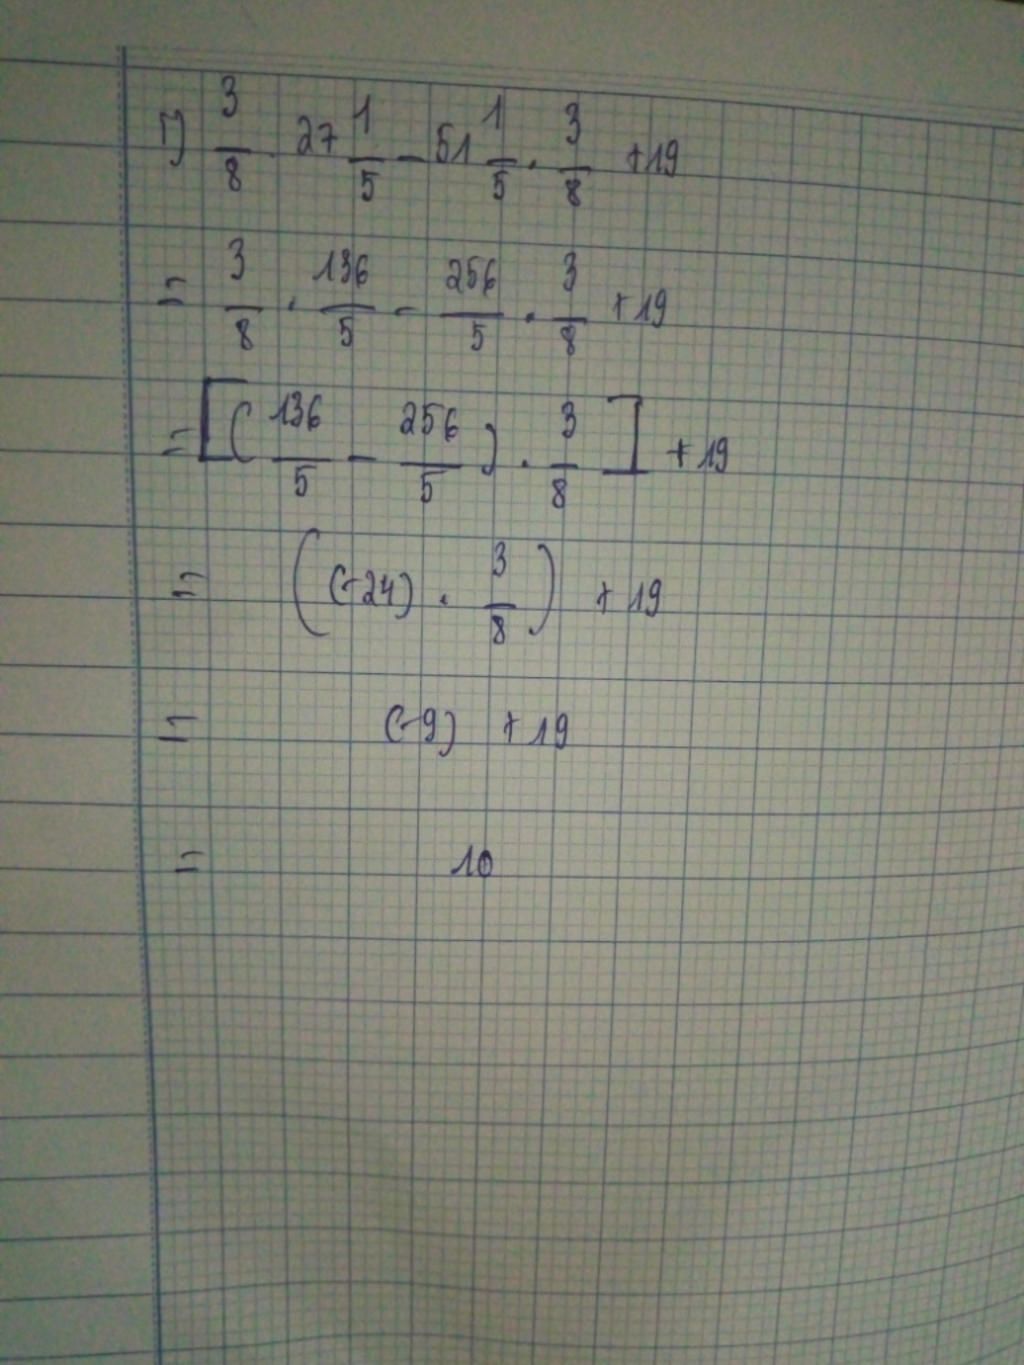 1) 3/8 . 27 1/5 - 51 1/5 . 3/8 + 19
= 3/8 . 136/5 - 256/5 . 3/8 + 19
= [(136/5 - 256/5) . 3/8] + 19
= ((-24) . 3/8) + 19
= (-9) + 19
= 10